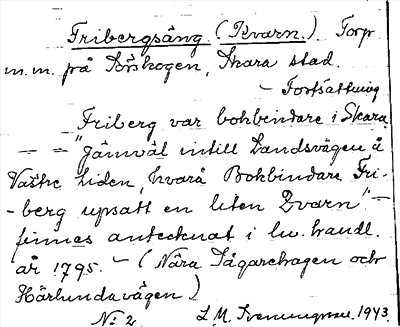 Fribergsäng (Kvarn.) Torp
m.m. på Dörskogen, Skara stad.
– Fortsättning
Friberg var bokbindare i Skara.
– = "Jämväl intill Landsvägen å
Vastre Liden, hvarå Bokbindare Fri-
-berg upsatt en liten Qvarn" –
finnes antecknat i lw. handl.
år 1795. – (Nära Jägarehagen och
Härlundavägen)
N:2 L.M. Svenungsson. 1943.